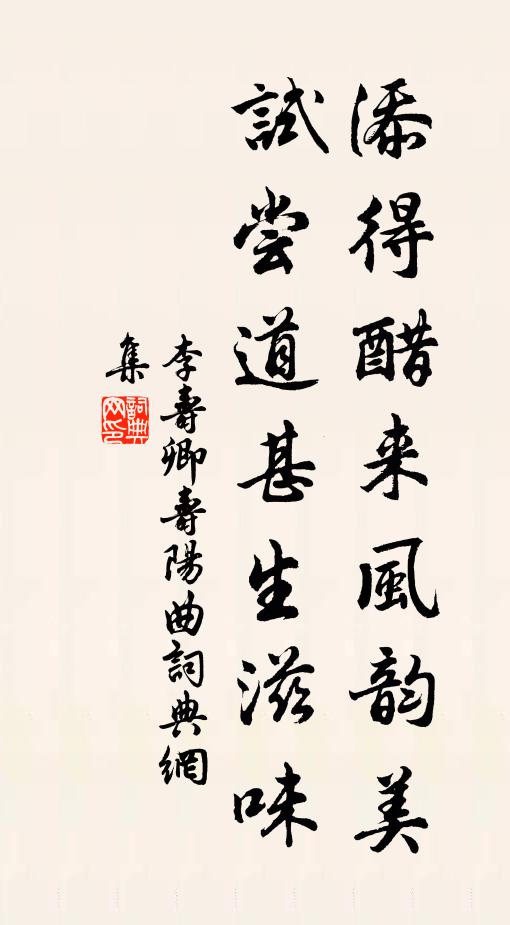 添得醋来風韵美
試尝道甚生滋味
李壽卿壽陽曲詞典網
集
詞典網印